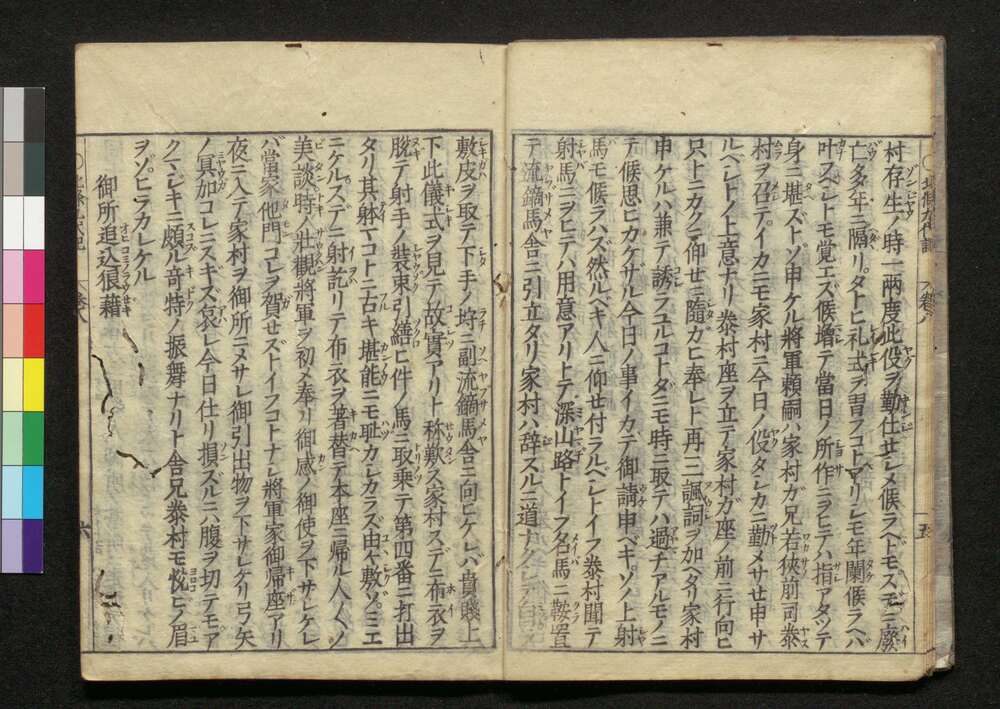 村存生ノ時一両度此役ヲ勤仕せシメ候ラヘトモスデニ廢
亡多年ニ隔リタトヒ礼式ヲ胃フコトアリシモ年闌候ラヘバ
叶スベシトモ覚エズ候増テ當日ノ所作ニヲヒテハ指アタツテ
身ニ堪ズトソ申ケル將軍頼嗣ハ家村ガ兄若狹前司泰
村ヲ召テイカニモ家村ニ今日ノ役タシカニ勤メサせ申サ
ルベシトノ上意ナリ泰村座ヲ立テ家村ガ座ノ前ニ行向ヒ
只トニカクニ仰せニ隨カヒ奉レト再三諷詞ヲ加ヘタリ家村
申ケルハ兼テ誘ラユルコトダニモ時ニ取テハ過チアルモノニ
テ候思ヒカケザル今日ノ事イカデ御請申ベキソノ上射
馬モ候ラハズ然ルベキ人ニ仰せ付ラルベシトイフ泰村聞テ
射馬ニヲヒテハ用意アリトテ深山路トイフ名馬ニ鞍置
テ流鏑馬舎ニ引立タリ家村ハ辞スルニ道ナク
敷皮ヲ取テ下手ノ埒ニ副流鏑馬舎ニ向ヒケレバ貴賤上
下此儀式ヲ見テ故實アリト称歎ス家村スデニ布衣ヲ
脱テ射手ノ裝束引繕ヒ件ノ馬ニ取乗テ第四番ニ打出
タリ其躰マコトニ古キ堪能ニモ耻カシカラズ由ケ敷ソミエ
ニケルステニ射訖リテ布衣ヲ著替テ本座ニ帰ル人々ノ
美談時ノ壮觀將軍ヲ初メ奉リ御感ノ御使ヲ下サレケレ
バ當家他門コレヲ賀せズトイフコトナシ將軍家御帰座アリ
夜ニ入テ家村ヲ御所ニメサレ御引出物ヲ下サレケリ弓矢
ノ冥加コレニスギズ哀レ今日仕リ損ズルニハ腹ヲ切テモア
クマジキニ頗ル竒特ノ振舞ナリト舎兄泰村モ悦ヒノ眉
ヲソヒラカレケル
御所追込狼藉